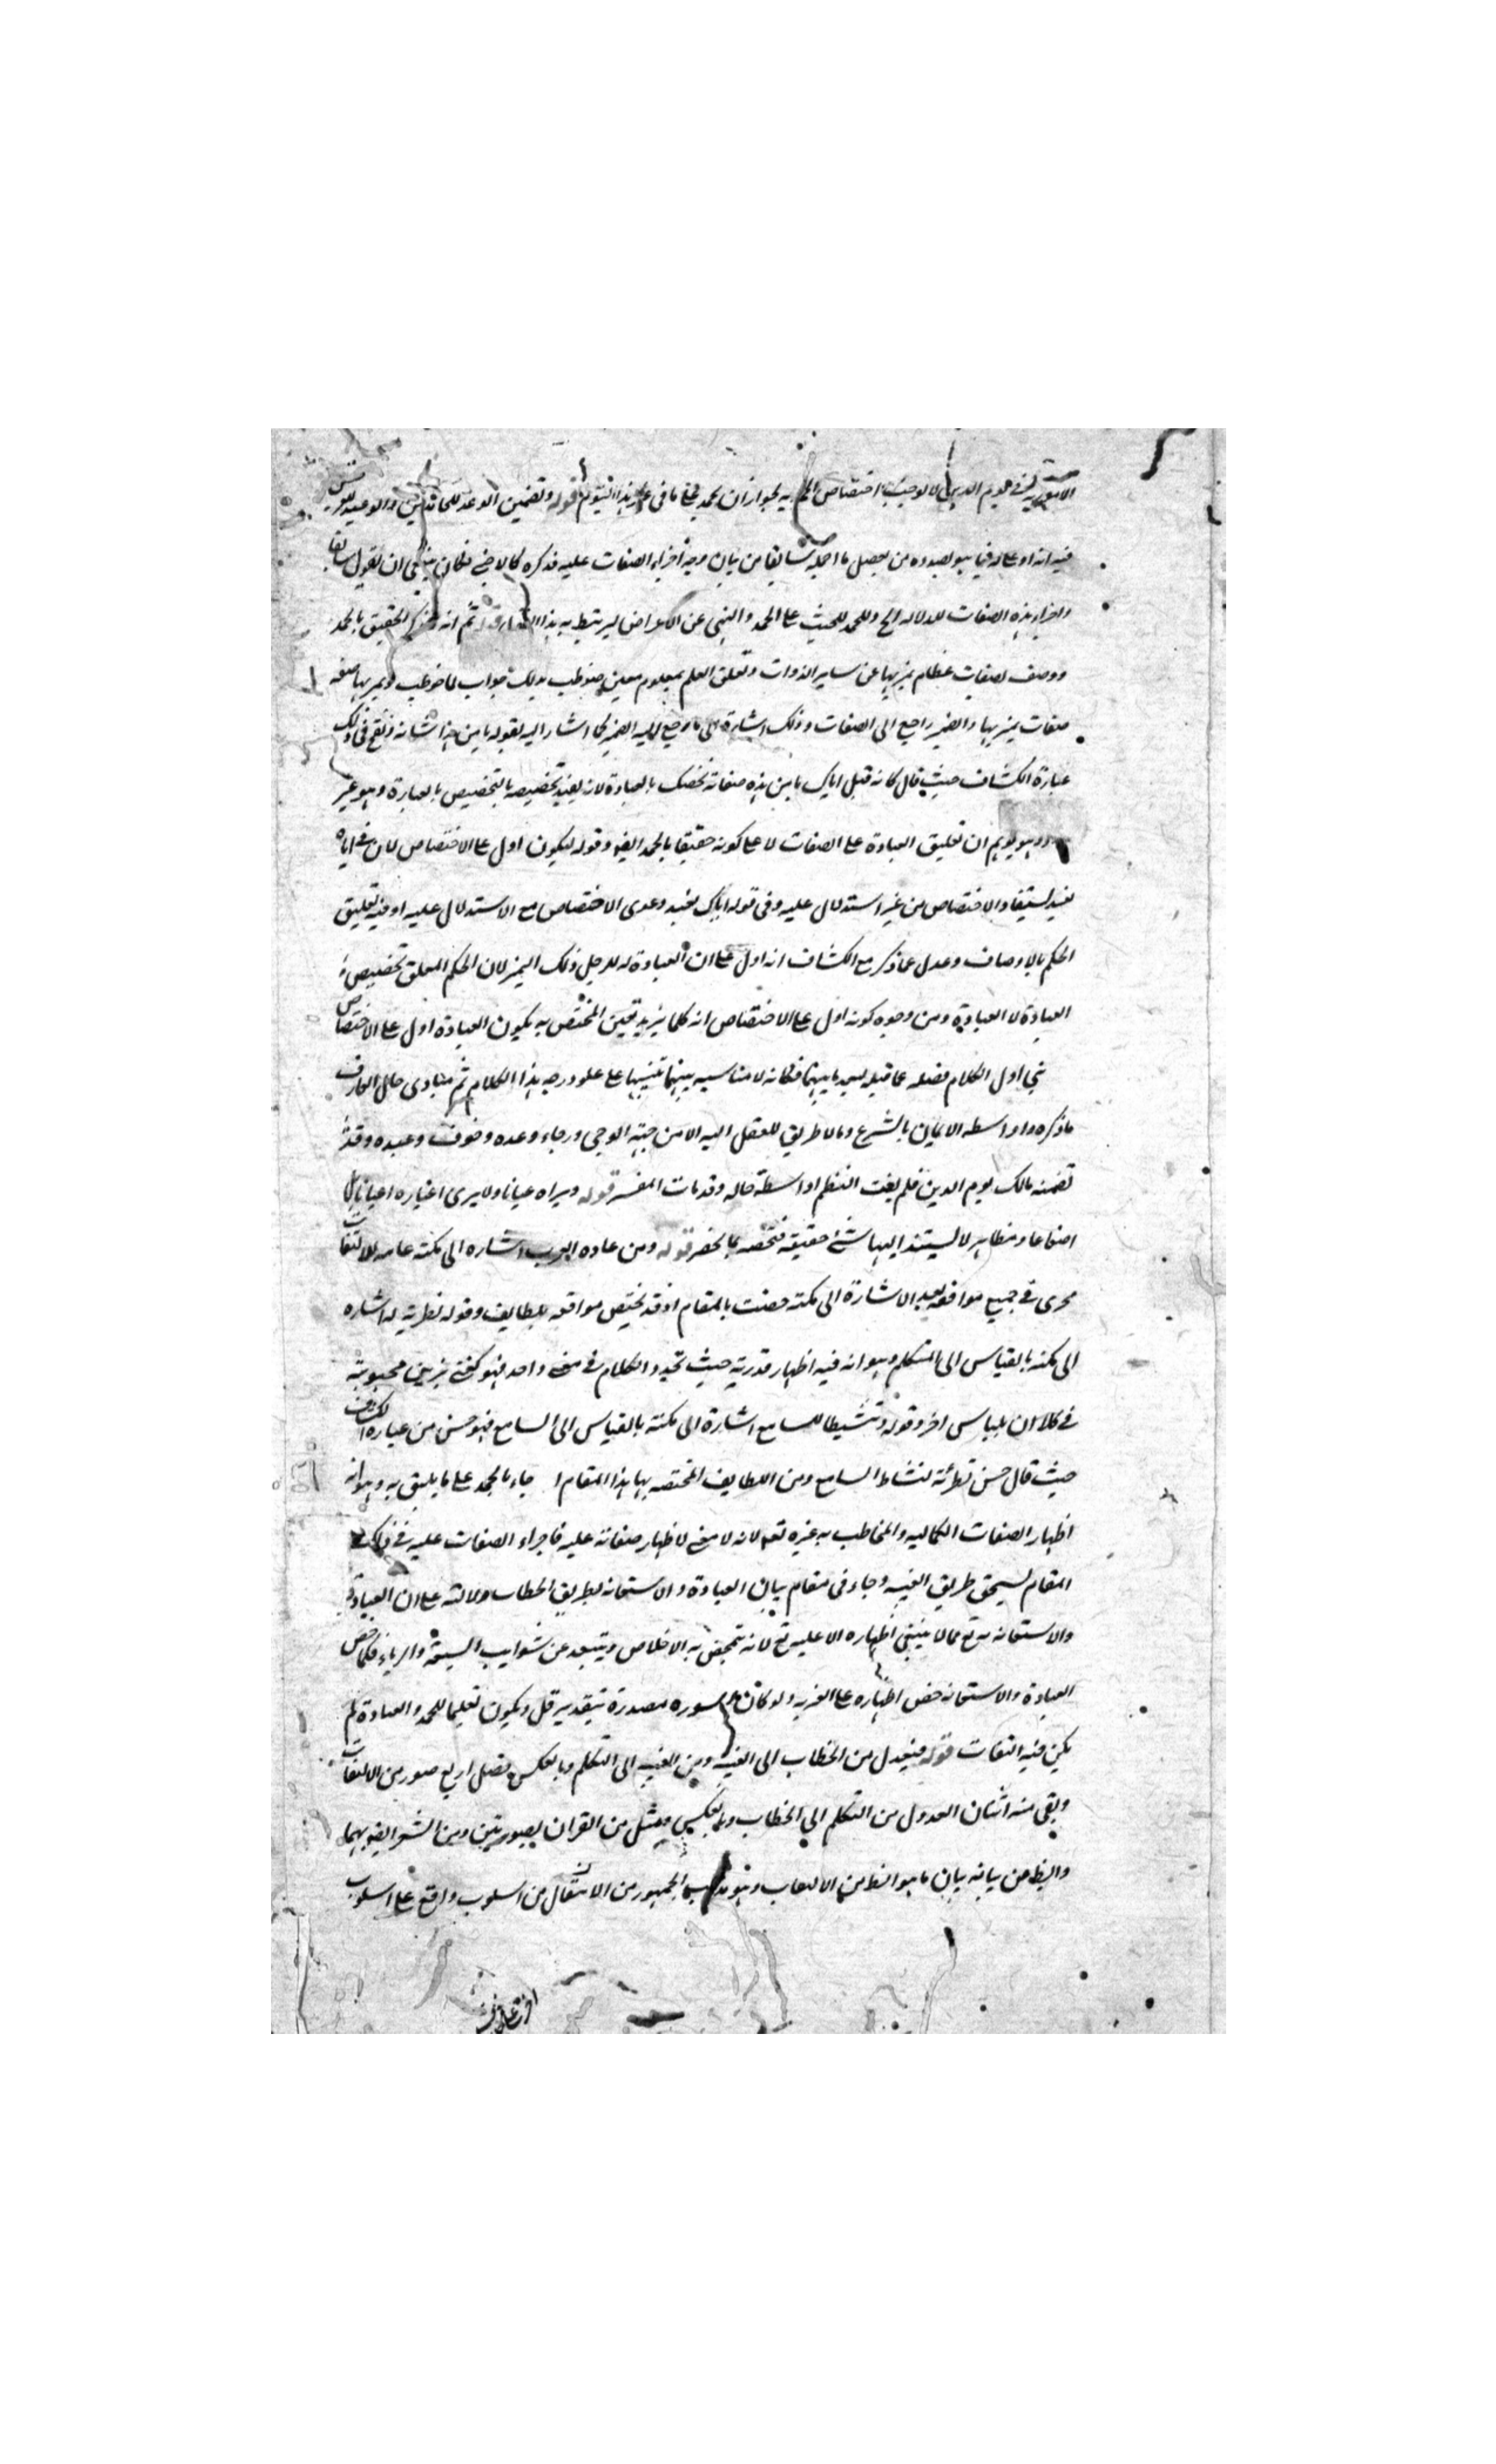 الامورية في يوم الدين لا يوجب اختصاص الحمد به لجواز ان يحمد قوله وتضمين الوعد للحامدين والوعيد للمعرضين
فيه انه او على له فيما هو بصدده من تفصيل ما اجمله سابقا من بيان وجه اجراء الصفات عليه فذكره كالاجنبي فكان ينبغي ان يقول سابقا
واجراء هذه الصفات للدلالة الخ وللحمد للحث على الحمد والنهي عن الاعراض ليرتبط به هذا قوله ثم انه لما ذكر الحقيق بالحمد
ووصف بصفات عظام تميز بها عن سائر الذوات وتعلق العلم بمعلوم معين خوطب بذلك جواب لما خوطب وتميز بها صفة
صفات يميز بها والضمير راجع الى الصفات وذلك اشارة الى ما رجع اليه الضمير كما اشار اليه بقوله يا من هذا شانه وقع في ذلك
عبارة الكشاف حيث قال كانه قيل اياك يا من هذه صفاته نخصك بالعبادة لانه يفيد تخصيصه بالتخصيص بالعبادة وهو غير
وهو يوهم ان تعليق العبادة على الصفات لا على كونه حقيقا بالحمد ايضا وقوله ليكون ادل على الاختصاص لان في اياه
نعبد يستفاد الاختصاص من غير استدلال عليه وفي قوله اياك نعبد دعوى الاختصاص مع الاستدلال عليه اذ فيه تعليق
الحكم بالاوصاف وعدل عما ذكر مع الكشاف انه ادل على ان العبادة له لاجل ذلك التميز لان الحكم المعلق تخصيص
العبادة لا العبادة ومن وجوه كونه ادل على الاختصاص انه كلما يزيد تعين المختص به يكون العبادة ادل على الاختصاص
بني اول الكلام فصله عما قبله لبعد ما بينهما فكانه لا مناسبة بينهما تنبيها على علو درجة هذا الكلام ثم مبادى حال العارف
ما ذكره واواسطه الايمان بالشرع وما لا طريق للعقل اليه الا من جهة الوحي ورجاء وعده وخوف وعيده وقد
تضمنه مالك يوم الدين فلم يفت النظم اواسطة حاله وقد فات المفسر قوله ويراه عيانا ولا يرى اغياره اعيانا بل
اضواء ومظاهر لا يستند اليها شئ حقيقة فتخصه بالحصر قوله ومن عادة العرب اشارة الى نكتة عامة للالتفات
تجرى في جميع مواقعه بعد الاشارة الى نكتة خصت بالمقام اذ قد يختص مواقعه بلطايف وقوله تطرية له اشارة
الى نكتة بالقياس الى المتكلم وهو انه فيه اظهار قدرته حيث تجدد الكلام في معنى واحد فهو كفتى يزين محبوبته
في كل آن بلباس اخر وقوله وتنشيطا للسامع اشارة الى نكتة بالقياس الى السامع فهو حسن من عبارة الكشاف
حيث قال حسن تطرئة لنشاط السامع ومن اللطايف المختصة بها هذا المقام جاء بالحمد على ما يليق به وهو انه
اظهار الصفات الكمالية والمخاطب به غيره تع لانه لا معنى لاظهار صفاته عليه فاجراء الصفات عليه في ذلك
المقام يستحق طريق الغيبة وجاء في مقام بيان العبادة والاستعانة بطريق الخطاب دلالة على ان العبادة
والاستعانة به تع مما لا ينبغي اظهاره الا عليه تع لانه يتمحض به الاخلاص ويتبعد عن شوايب السمعة والرياء فكما خص
العبادة والاستعانة خص اظهاره على الغيرية ولو كان السورة مصدرة بتقدير قل ويكون تعليما للحمد والعبادة لم
يكن فيه التفات قوله فيعدل من الخطاب الى الغيبة ومن الغيبة الى التكلم وبالعكس فصل اربع صور من الالتفات
وبقي منه اثنان العدول من التكلم الى الخطاب وبالعكس ومثل من القران بصورتين ومن الشعر ايضا بهما
والظ من بيانه بيان ما هو الظ من الالتفات وهو مذهب الجمهور من الانتقال من اسلوب واقع على اسلوب